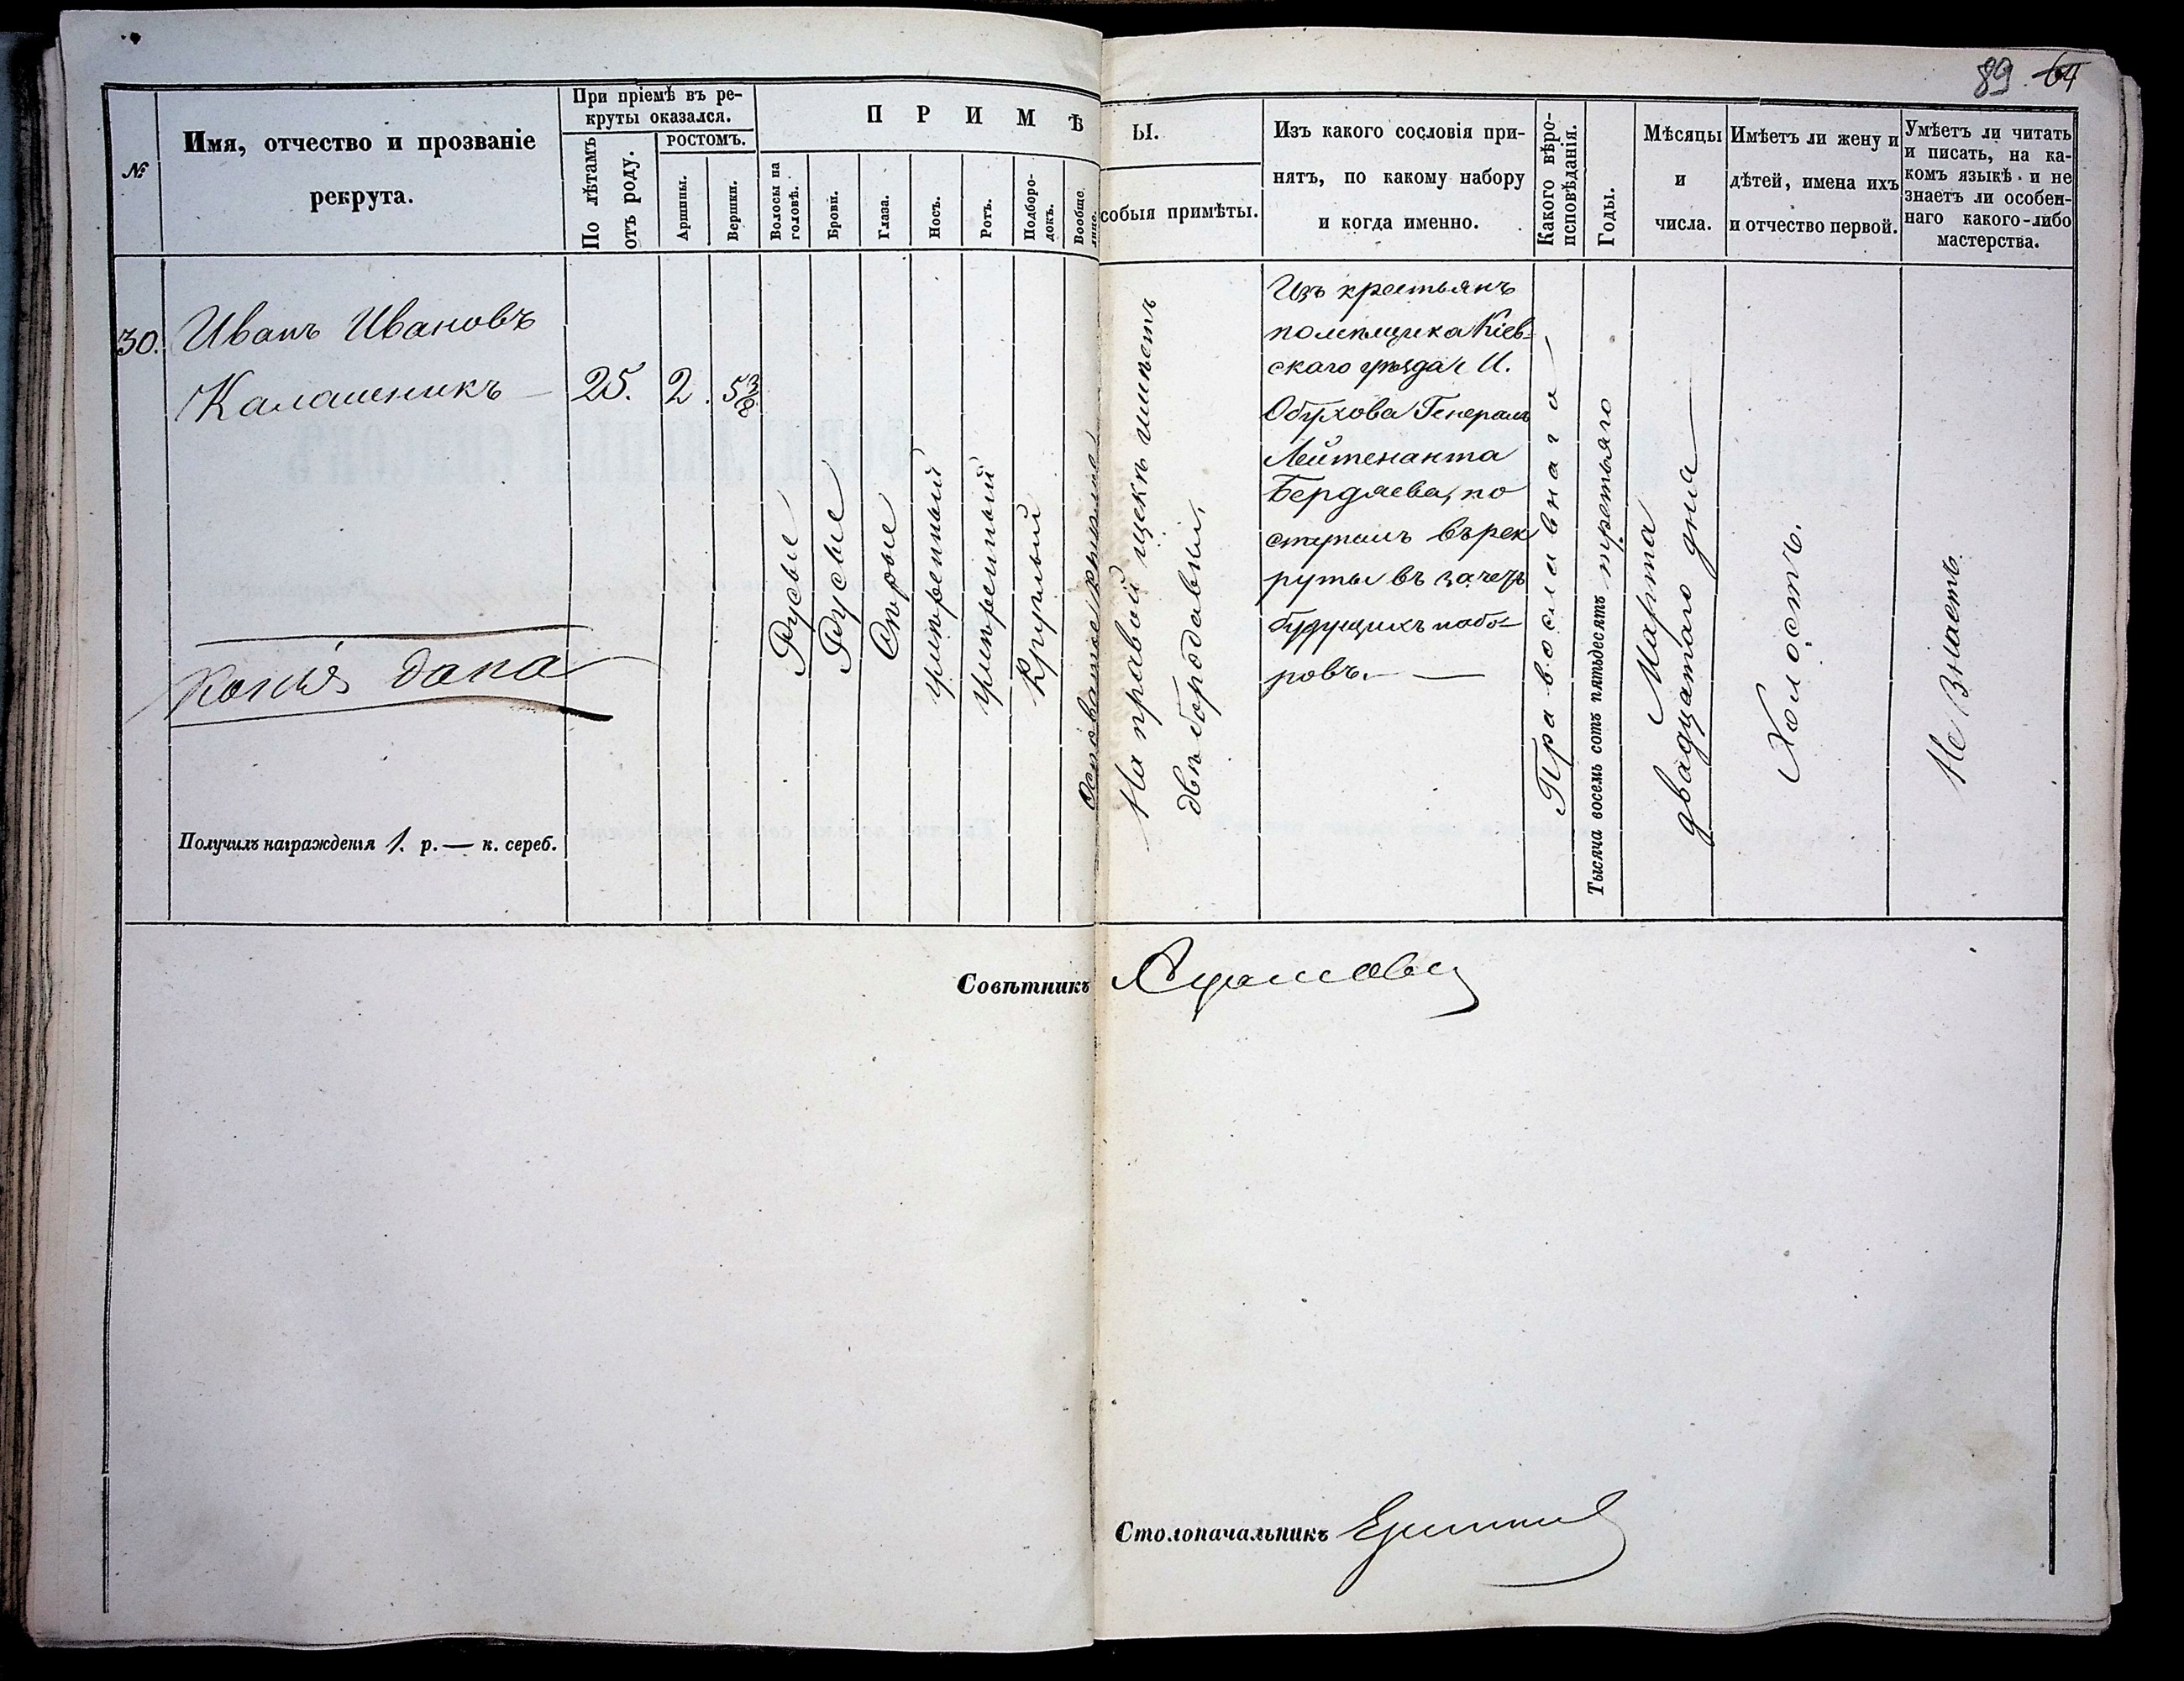 89. 64
№
Имя, отчество и прозваніе
рекрута.
При пріемѣ въ ре-
круты оказался.
По лѣтамъ
отъ роду.
ростомъ.
Аршины.
Вершки.
П Р И М Ѣ
Волосы на
головѣ.
Брови.
Глаза.
Носъ.
Ротъ.
Подборо-
докъ.
Вообще
лице.
Ы.
собыя примѣты.
Изъ какого сословія при-
нятъ, по какому набору
и когда именно.
Какого вѣро-
исповѣданія.
Годы.
Мѣсяцы
и
числа.
Имѣетъ ли жену и
дѣтей, имена ихъ
и отчество первой.
Умѣетъ ли читать
и писать, на ка-
комъ языкѣ и не
знаетъ ли особен-
наго какого-либо
мастерства.
30.
Иванъ Ивановъ
Калашникъ
25.
2.
5 3/8
Копія дана
Получилъ награжденія 1. р. — к. сереб.
Русые
Русые
Сѣрые
умѣренный
умѣренный
Круглый
На правой щекѣ имѣетъ
двѣ бородавки,
Изъ крестьянъ
помѣщика Кіев-
скаго уѣзда И.
Обухова Генералъ
Лейтенанта
Бердяева, по
ступилъ въ рек
руты въ зачетъ
будущихъ набо-
ровъ. —
Православнаго
Тысяча восемь сотъ пятьдесятъ третьяго
Марта
двадцатаго дня
Холостъ.
Не знаетъ.
Совѣтникъ
Столоначальникъ